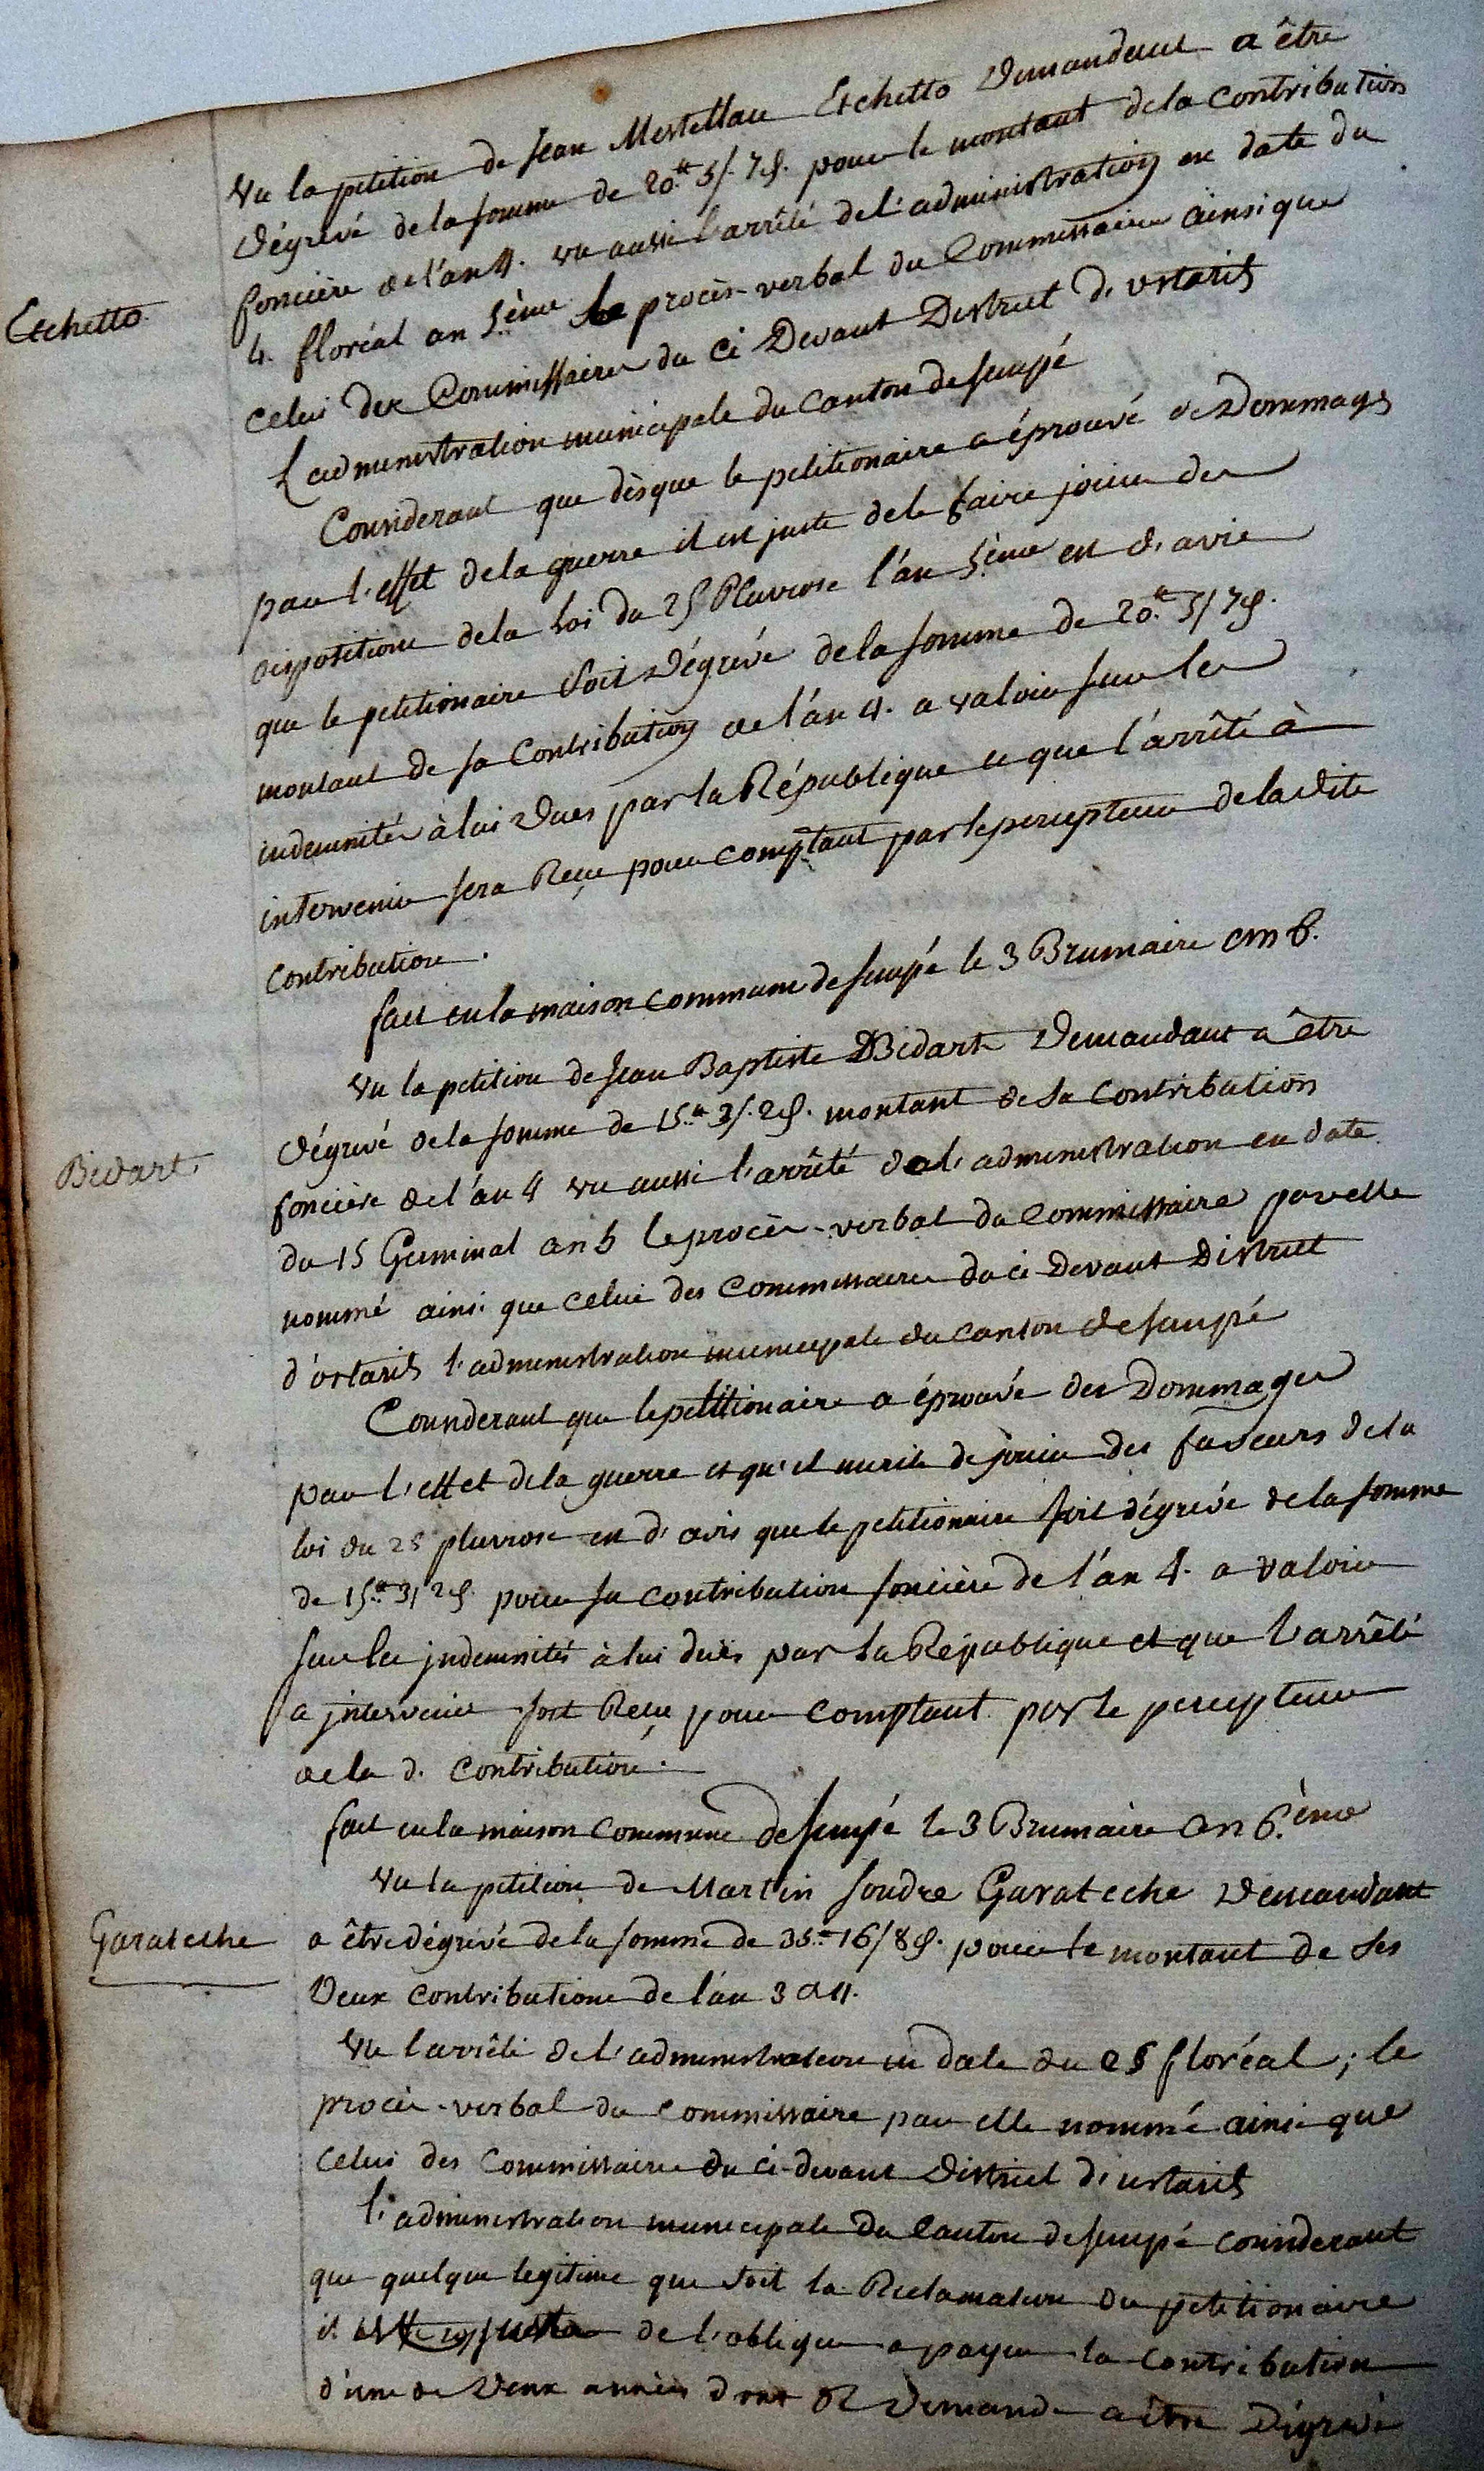 Vu la petition de Jean Mestellau Etchetto Demandant a être
Dégrévé de la somme de 20.tt 5/. 7 d. pour le montant de la contribution
fonciere de l'an 4. vu aussi l'arrêté de l'administration en date du
Etchetto
4. floréal an 5.ème le procès-verbal du Commissaire ainsi que
celui des Commissaires du ci Devant District d'ustarits
L'administration municipale du Canton de Sempé
Considerant que dèsque le petitionaire a éprouvé de Dommages
par l'effet de la guerre il est juste de le faire jouir des
dispositions de la Loi du 25 Pluviose l'an 5.ème est d'avis
que le petitionaire soit Dégrévé de la somme de 20.tt 5/ 7 d.
montant de sa Contribution de l'an 4. a valoir sur les
indemnités à lui Dues par la République et que l'arrêté à
intervenir sera Reçu pour comptant par le percepteur de la dite
contribution.
fait en la maison commune de Sempé le 3 Brumaire an 6.
Vu la petition de Jean Baptiste Bidart Demandant a être
Dégrevé de la somme de 15.tt 3/. 2 d. montant de sa contribution
Bidart
fonciere de l'an 4 vu aussi l'arrêté de l'administration en date
du 15 Germinal an 5 le procès-verbal du Commissaire par elle
nommé ainsi que celui des Commissaires du ci-Devant District
d'ustarits l'administration municipale du canton de Sempé
Considerant que le petitionaire a éprouvé des Dommages
par l'effet de la guerre et qu'il merite de jouir des faveurs de la
loi du 25 pluviose est d'avis que le petitionaire soit dégrevé de la somme
de 15.tt 3/ 2 d. pour sa contribution fonciere de l'an 4. a valoir
sur les jndemnités à lui dues par la République et que l'arrêté
a jntervenir soit Reçu pour comptant par le percepteur
de la d. contribution.
fait en la maison commune de Sempé le 3 Brumaire an 6.ème
Vu la petition de Martin Garateche Demandant
Garateche
a être dégrévé de la somme de 35.tt 16/ 8 d. pour le montant de ses
Deux contributions de l'an 3 a 4.
Vu l'arrêté de l'administration en date du 25 floréal ; le
procès-verbal du commissaire par elle nommé ainsi que
celui des commissaires du ci-devant District d'ustarits
l'administration municipale du Canton de Sempé considerant
que quelque legitime que soit la Reclamation du petitionaire
il est de l'obliger a payer la contribution
d'une de Deux années dont il Demande a être Dégrevé